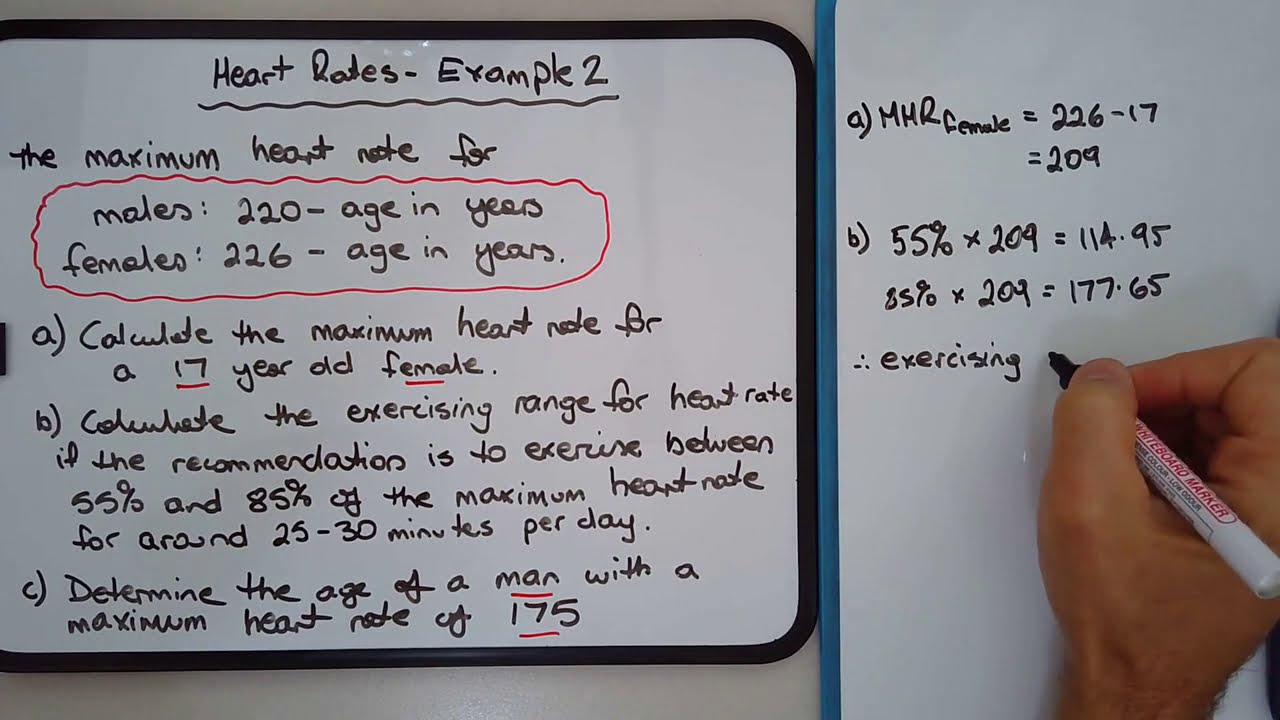 Heart Rates - Example 2
the maximum heart rate for
males: 220 - age in years
females: 226 - age in years.
a) Calculate the maximum heart rate for
a 17 year old female.
b) Calculate the exercising range for heart rate
if the recommendation is to exercise between
55% and 85% of the maximum heart rate
for around 25-30 minutes per day.
c) Determine the age of a man with a
maximum heart rate of 175
a) MHR female = 226 - 17
= 209
b) 55% × 209 = 114.95
85% × 209 = 177.65
∴ exercising
WHITEBOARD MARKER